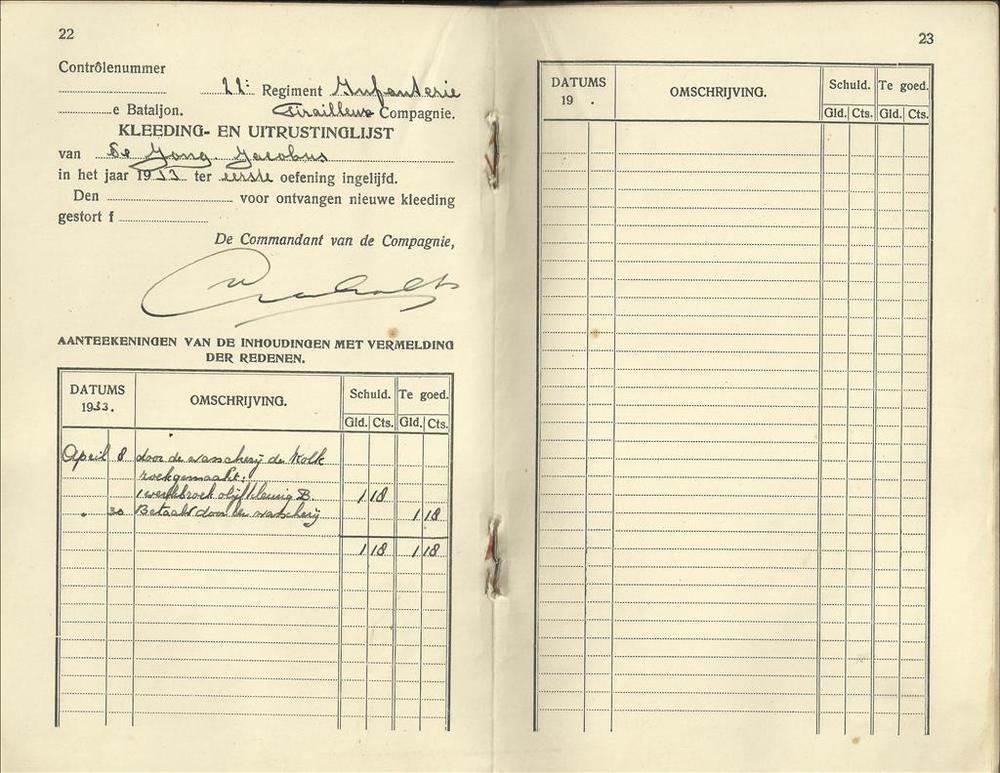 22
Contrôlenummer
22e Regiment Infanterie
e Bataljon. Tirailleur Compagnie.
KLEEDING- EN UITRUSTINGLIJST
van De Jong. Jacobus
in het jaar 1933 ter eerste oefening ingelijfd.
Den voor ontvangen nieuwe kleeding
gestort f
De Commandant van de Compagnie,
AANTEEKENINGEN VAN DE INHOUDINGEN MET VERMELDING
DER REDENEN.
DATUMS
1933.
OMSCHRIJVING.
Schuld. Te goed.
Gld. Cts. Gld. Cts.
April 8 door de wasscherij de Kolk
zoekgemaakt:
1 werkbroek olijfkleurig B. 1 18
" 30 Betaald door de wasscherij 1 18
1 18 1 18
23
DATUMS
19 .
OMSCHRIJVING.
Schuld. Te goed.
Gld. Cts. Gld. Cts.